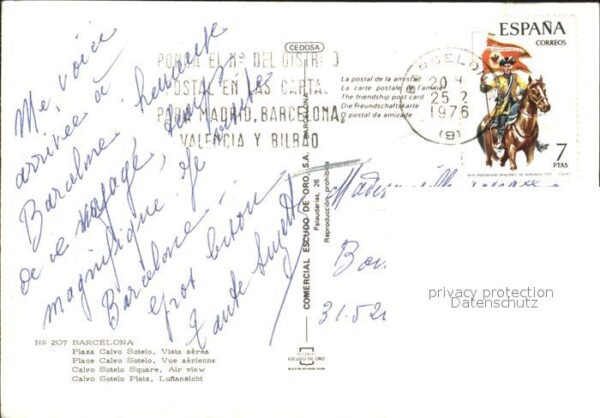 Me, voici
arrivée à
Barcelone heureuse
de ce voyage, temps
magnifique je visite
Barcelone.
gros bisou
Tante Suzette
PONGA EL Nº DEL DISTRITO
POSTAL EN LAS CARTAS
PARA MADRID, BARCELONA,
VALENCIA Y BILBAO
CEDOSA
La postal de la amistad
La carte postale de l'amitié
The friendship post card
Die Freundschaftskarte
O postal da amizade
COMERCIAL ESCUDO DE ORO, S.A. BARCELONA
Palaudarias, 26
Reproducción prohibida
BARCELONA
25 2
1976
(9)
ESPAÑA
CORREOS
7
PTAS
Mademoiselle
Bou
31.52
privacy protection
Datenschutz
Nº 207 BARCELONA
Plaza Calvo Sotelo, Vista aérea
Place Calvo Sotelo, Vue aérienne
Calvo Sotelo Square, Air view
Calvo Sotelo Platz, Luftansicht
ESCUDO DE ORO